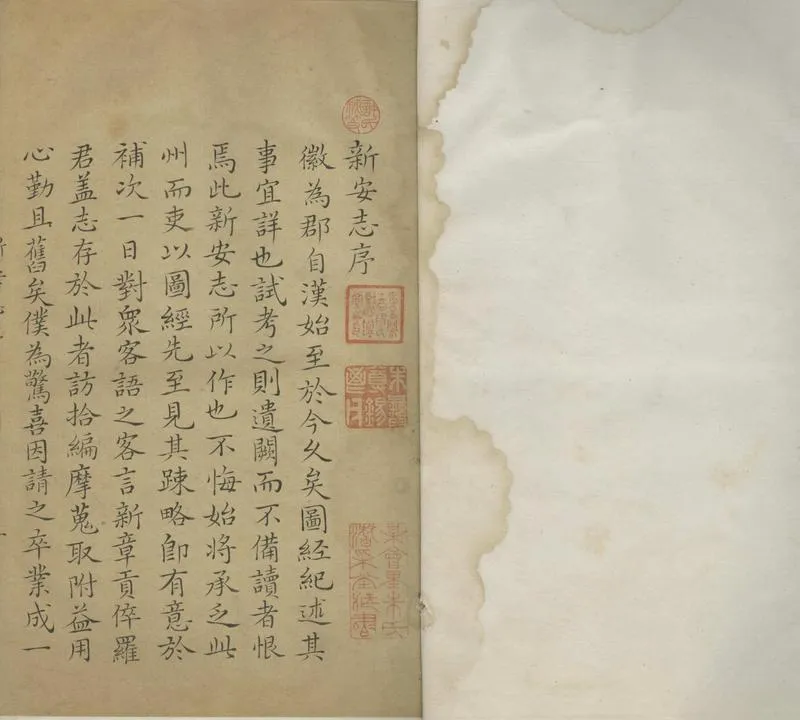 新安志序
徽為郡自漢始至於今久矣圖經紀述其
事宜詳也試考之則遺闕而不備讀者恨
焉此新安志所以作也不悔始將承乏此
州而吏以圖經先至見其踈略卽有意於
補次一日對衆客語之客言新章貢倅羅
君盖志存於此者訪拾編摩蒐取附益用
心勤且舊矣僕為驚喜因請之卒業成一